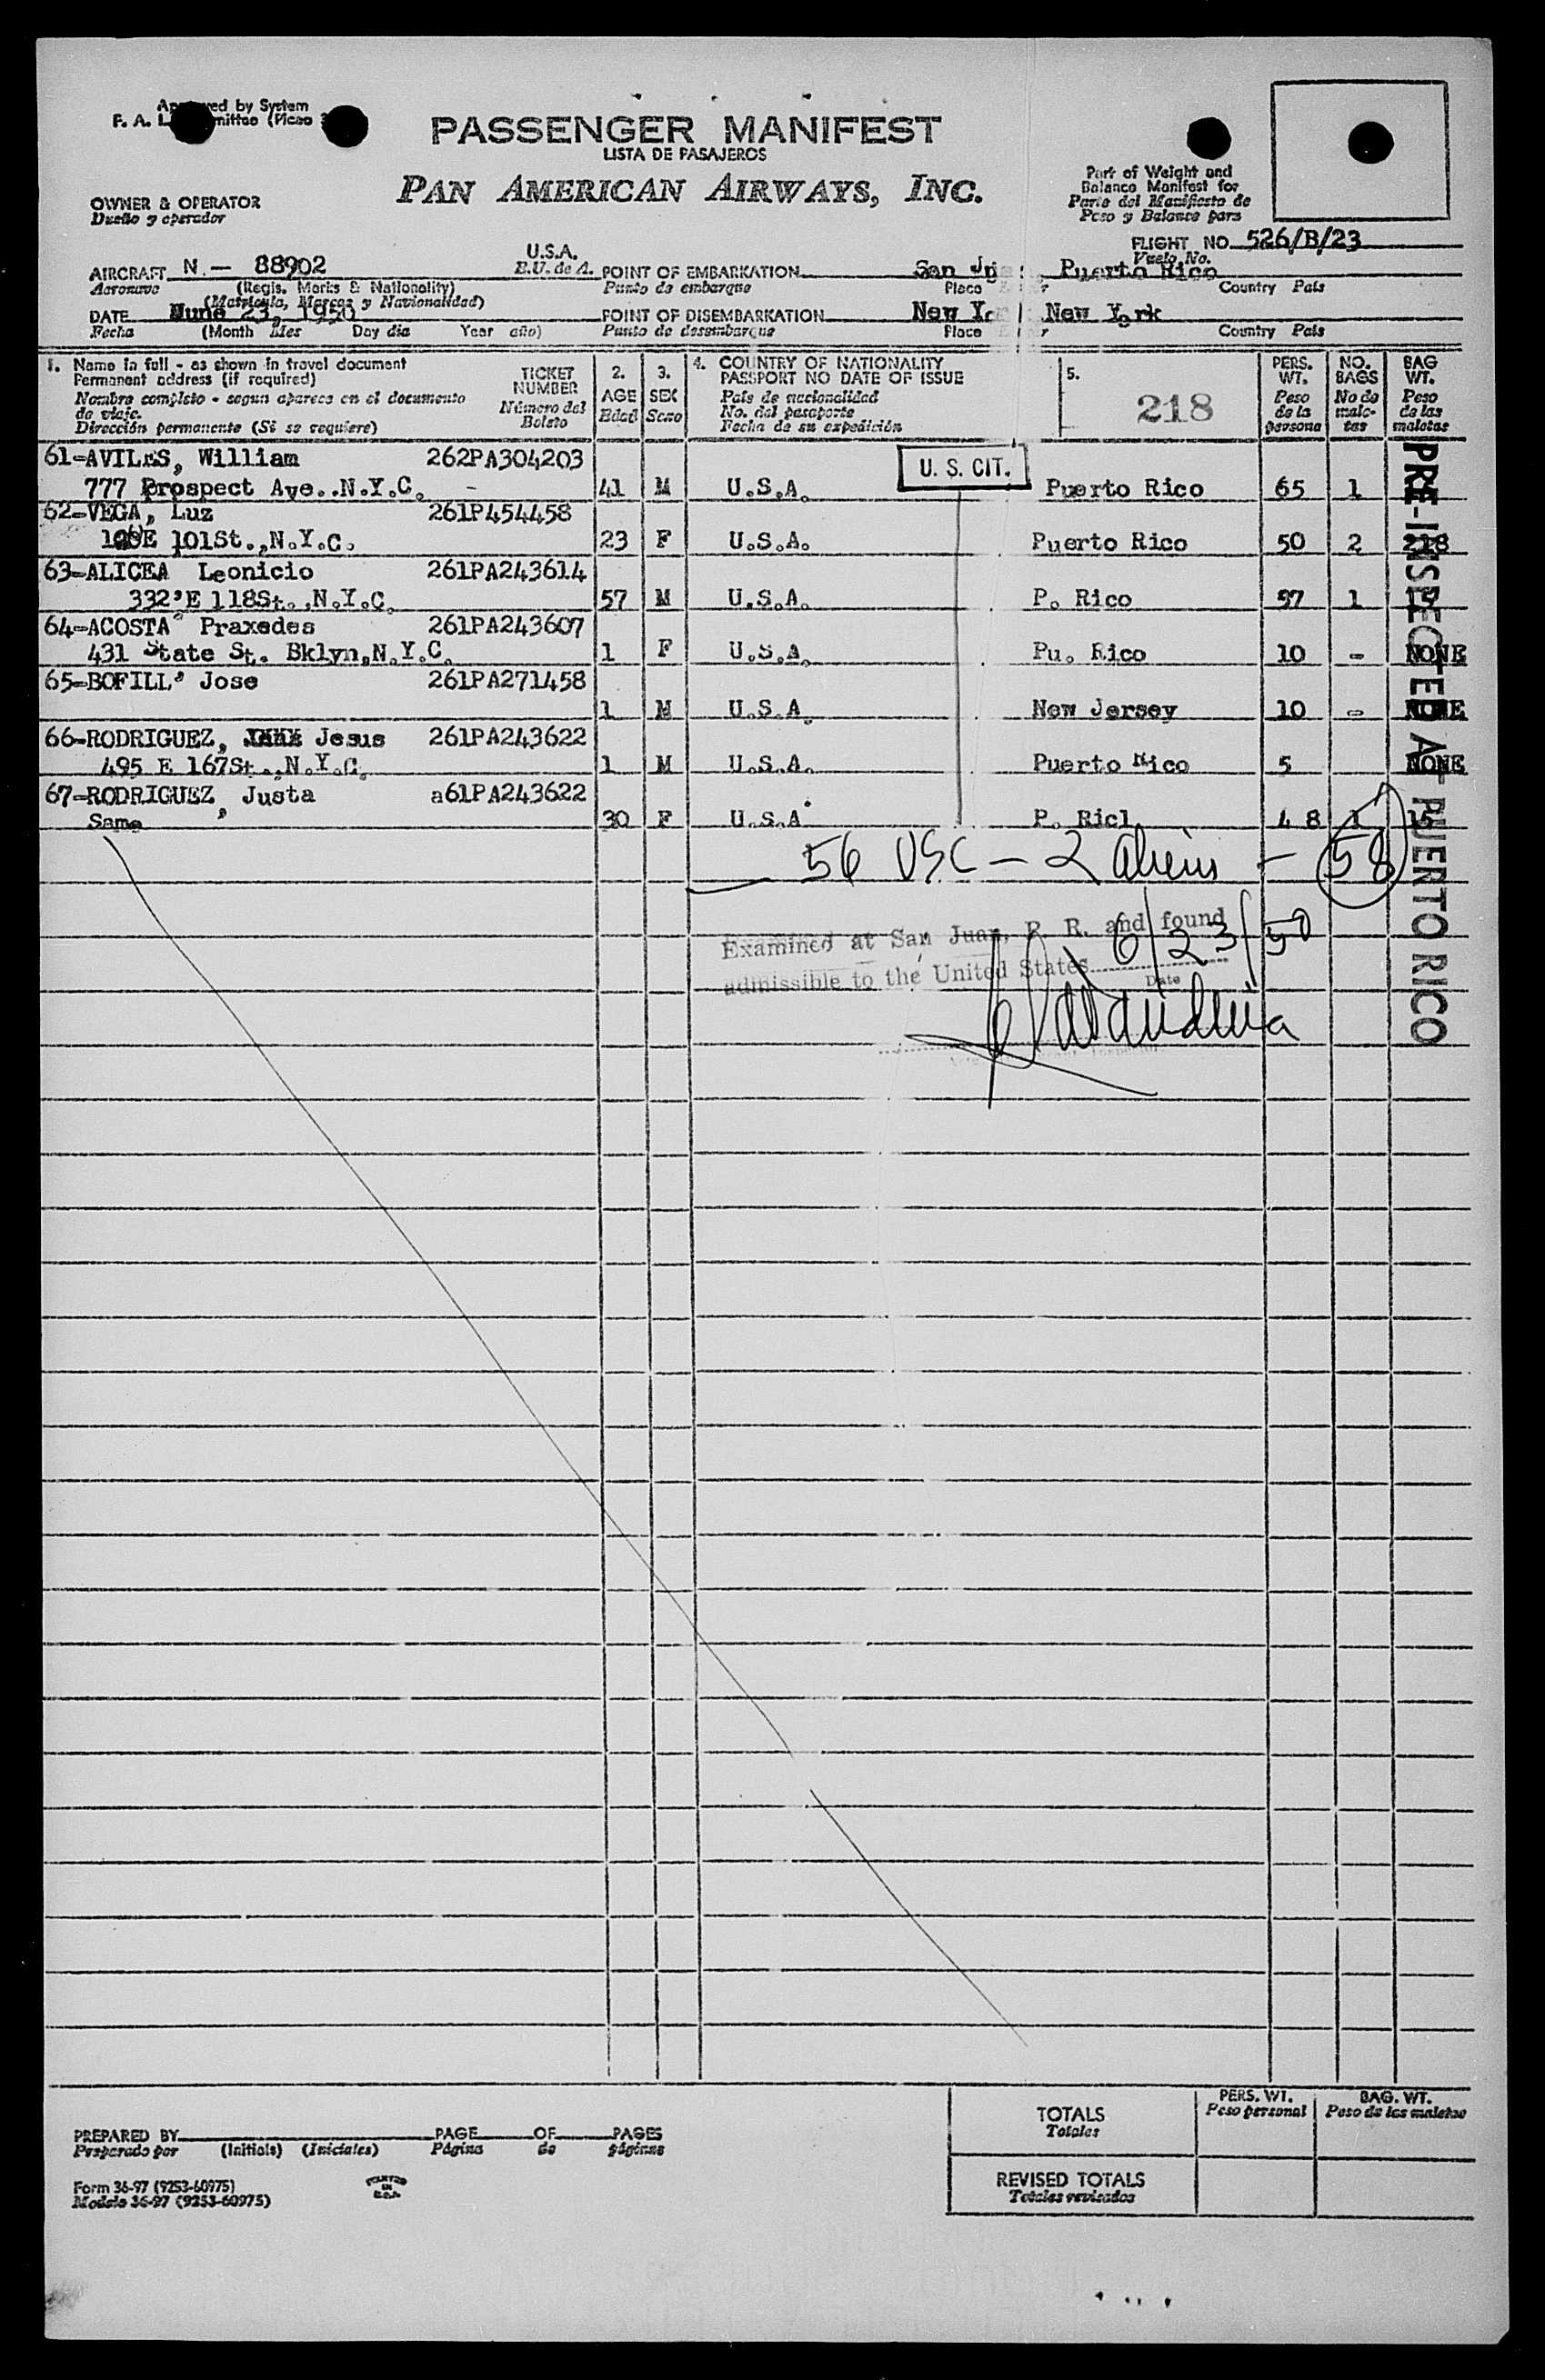 PASSENGER MANIFEST
LISTA DE PASAJEROS
PAN AMERICAN AIRWAYS, INC.
by System
F. A.
Part of Weight and
Balance Manifest for
Parte del Manifiesto de
Peso y Balance para
OWNER & OPERATOR
Dueño y operador
FLIGHT NO. 526/B/23
Vuelo No.
U.S.A.
E.U. de A.
AIRCRAFT N — 88902
Aeronave (Regis. Marks & Nationality)
(Matricula, Marcas y Nationalidad)
POINT OF EMBARKATION San Puerto Rico
Punto de embarque Place Country Pais
DATE June 23, 1950
Fecha (Month Mes Day dia Year año)
POINT OF DISEMBARKATION New New York
Punto de desembarque Place Country Pais
1. Name in full - as shown in travel document
Permanent address (if required)
Nombre completo - segun aparece en el documento
de viaje.
Dirección permanente (Si se requiere)
TICKET
NUMBER
Número del
Boleto
2.
AGE
Edad
3.
SEX
Sexo
4. COUNTRY OF NATIONALITY
PASSPORT NO DATE OF ISSUE
Pais de nacionalidad
No. del pasaporte
Fecha de su expedición
5.
218
PERS.
WT.
Peso
de la
persona
NO.
BAGS
No de
male-
tas
BAG
WT.
Peso
de las
maletas
U. S. CIT.
61-AVILES, William 262PA304203
777 Prospect Ave..N.Y.C. - 41 M U.S.A. Puerto Rico 65 1
62-VEGA, Luz 261P454458
E 101St.,N.Y.C. 23 F U.S.A. Puerto Rico 50 2
63-ALICEA Leonicio 261PA243614
332'E 118St..N.Y.C. 57 M U.S.A. P. Rico 57 1
64-ACOSTA Praxedes 261PA243607
431 State St. Bklyn,N.Y.C. 1 F U.S.A. Pu. Rico 10 - NONE
65-BOFILL' Jose 261PA271458
1 M U.S.A. New Jersey 10 - NONE
66-RODRIGUEZ, Jesus 261PA243622
495 E 167St.,N.Y.C. 1 M U.S.A. Puerto Rico 5 NONE
67-RODRIGUEZ, Justa a61PA243622
Same 30 F U.S.A. P. Ricl 48 1 15
PRE-INSPECTED A PUERTO RICO
56 USC - 2 aliens - 58
Examined at San Juan, P. R. and found
admissible to the United States 6/23/50
Date
TOTALS
Totales
PERS. WT.
Peso personal
BAG. WT.
Peso de las maletas
REVISED TOTALS
Totales revisados
PREPARED BY PAGE OF PAGES
Preparado por (Initials) (Iniciales) Página de páginas
Form 36-97 (9253-60975)
Modelo 36-97 (9253-60975)
PRINTED
IN
U.S.A.